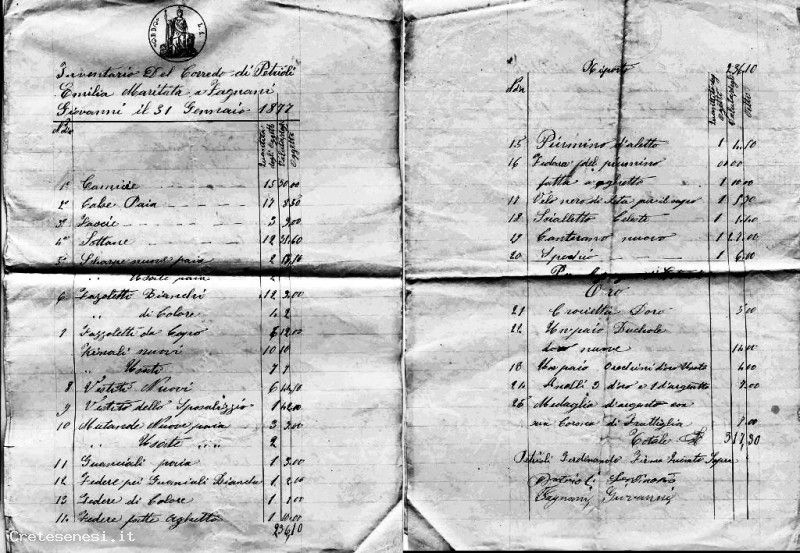 Inventario Del Corredo di Petrioli
Emilia Maritata a Fagnani
Giovanni il 31 Gennaio 1877
Quantità degli Oggetti
Valuta degli oggetti
1° Camicie 15 30.00
2° Calze Paia 17 8.50
3° 3 3.00
4° Sottane 12 31.60
5° Sharpe nuove paia 2
" Usate paia 2
6 Fazzoletti Bianchi 12 3.00
" di Colore 4 2
7 Fazzoletti da Capo 6 12.00
Ghinali nuovi 10 10
" Usati 7 7
8 Vestiti Nuovi 6
9 Vestito dello Sposalizio 1 42.00
10 Mutande Nuove paia 3 3.00
" Usate " " 2
11 Guanciali paia 1 3.00
12 Federe per Guanciali Bianche 1 2.00
13 Federe di Colore 1 1.00
14 Federe fatte Aghetto 1 10.00
236.10
Riporto 236.10
15 Piumino d'aletto 1
16 Federa pel piumino
fatta a aghetto 1 10.00
17 Velo nero di seta per il capo 1
18 Scialletto Celeste 1
19 Canterano nuovo 1
20 Specchio 1 6.00
Oro
21 Crocietta Doro 5.00
22 Un paio Buchole
nuove 14.00
23 Un paio Orecchini doro Usato 4.00
24 Anelli 3 d'oro e 1 d'argento 9.00
25 Medaglia d'argento con
una Corona di Frattiglia
Totale 317,30
Petrioli Ferdinando
Petrioli
Fagnani Giovanni
Cretesenesi.it